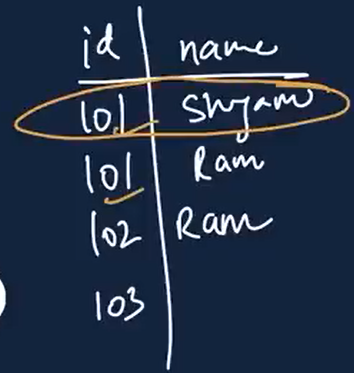 id name
101 Shyam
101 Ram
102 Ram
103